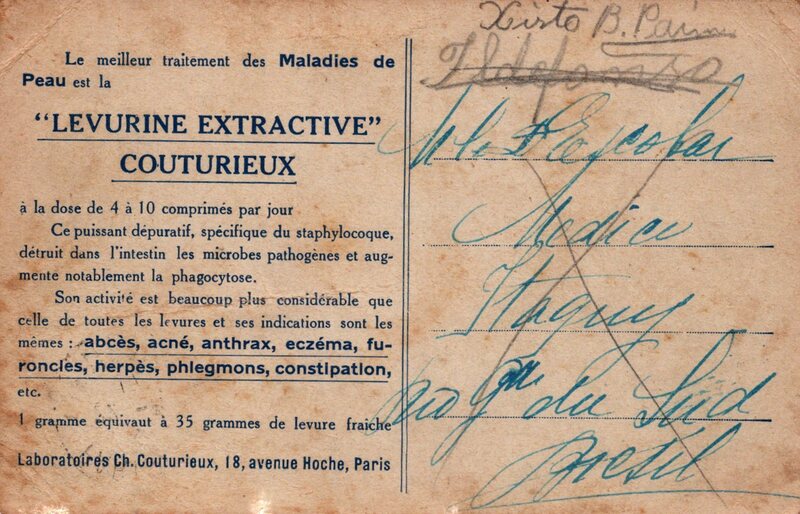 Le meilleur traitement des Maladies de
Peau est la
“LEVURINE EXTRACTIVE”
COUTURIEUX
à la dose de 4 à 10 comprimés par jour
Ce puissant dépuratif, spécifique du staphylocoque,
détruit dans l'intestin les microbes pathogènes et aug-
mente notablement la phagocytose.
Son activité est beaucoup plus considérable que
celle de toutes les levures et ses indications sont les
mêmes : abcès, acné, anthrax, eczéma, fu-
roncles, herpès, phlegmons, constipation,
etc.
1 gramme équivaut à 35 grammes de levure fraiche
Laboratoires Ch. Couturieux, 18, avenue Hoche, Paris
Xisto B. Paim
Ildefonso
Dr Escobar
Medico
Itaquy
du Sud
Brésil